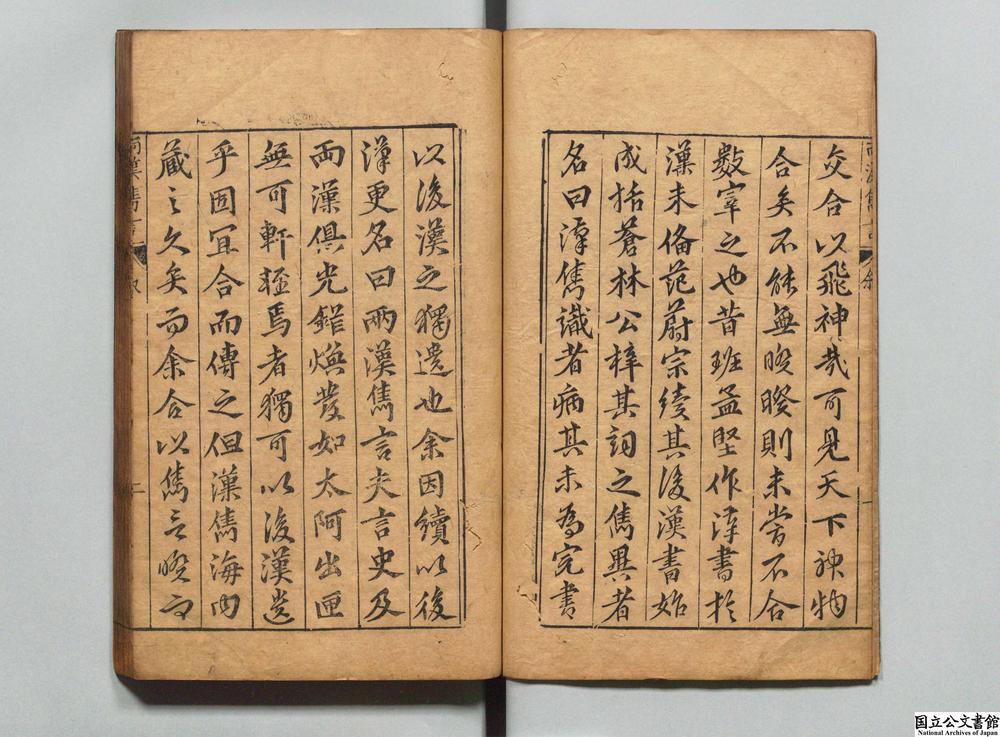 交合以飛神哉可見天下神物
合矣不能無暌暌則未嘗不合
數宰之也昔班孟堅作漢書於
漢未備范蔚宗續其後漢書始
成括蒼林公梓其詞之雋異者
名曰漢雋識者病其未為完書
以後漢之獨遺也余因續以後
漢更名曰兩漢雋言夫言史及
兩漢俱光錯煥發如太阿出匣
無可軒輊焉者獨可以後漢遺
乎固宜合而傳之但漢雋海內
藏之久矣而余合以雋言暌而
兩漢雋言
叙
二
兩漢雋言
叙
一
国立公文書館
National Archives of Japan